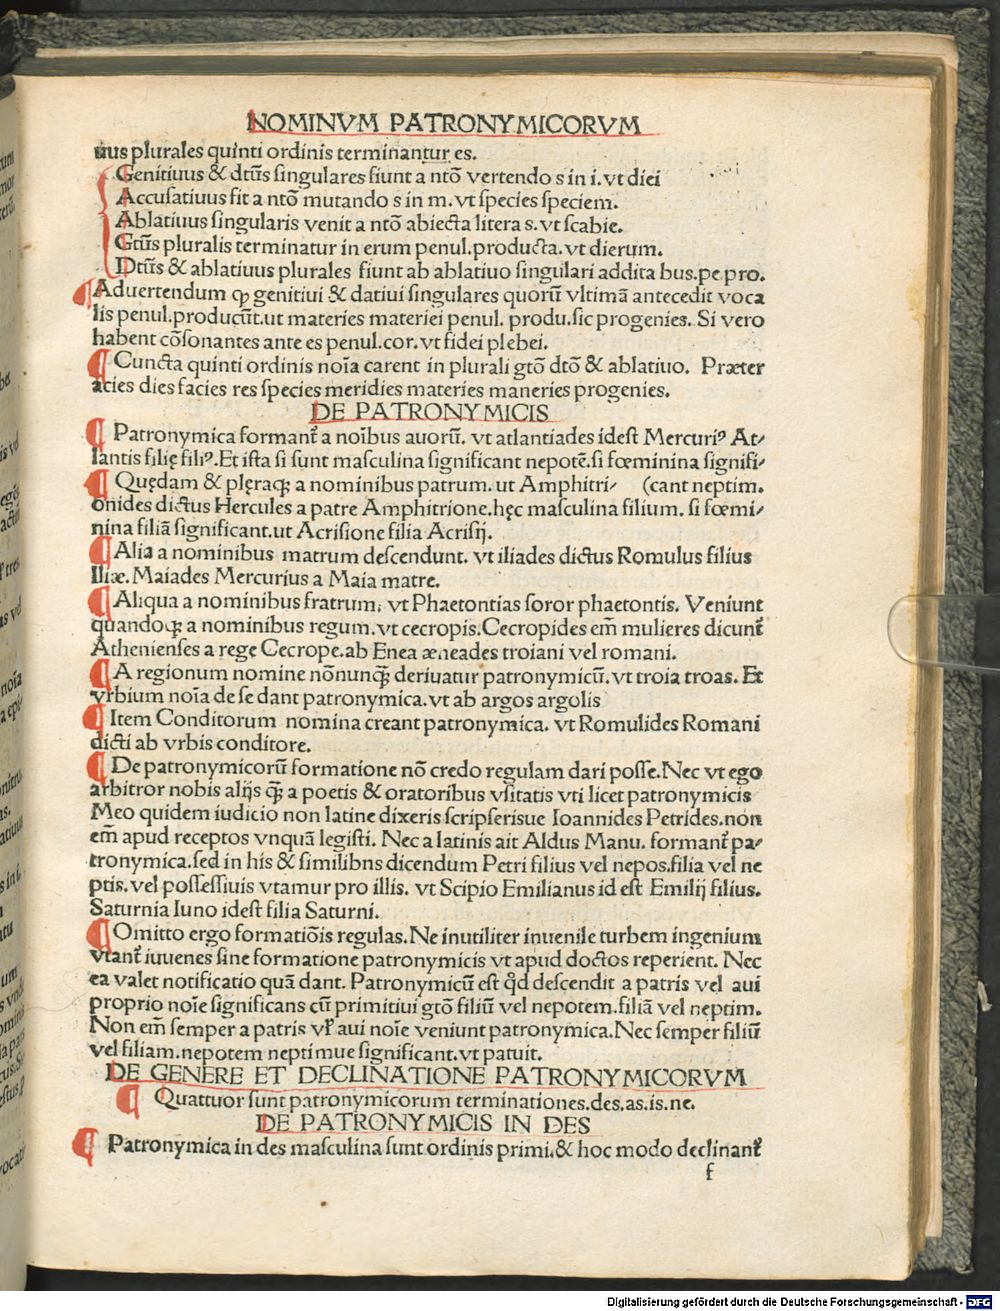 NOMINVM PATRONYMICORVM
uus plurales quinti ordinis terminantur es.
Genitiuus & dtũs singulares fiunt a ntõ vertendo s in i. vt diei
Accusatiuus fit a ntõ mutando s in m. vt species speciem.
Ablatiuus singularis venit a ntõ abiecta litera s. vt scabie.
Gtũs pluralis terminatur in erum penul. producta. vt dierum.
Dtũs & ablatiuus plurales fiunt ab ablatiuo singulari addita bus. pe pro.
¶ Aduertendum ꝙ genitiui & datiui singulares quorũ vltimã antecedit voca
lis penul. producũt. ut materies materiei penul. produ. sic progenies. Si vero
habent cõsonantes ante es penul. cor. vt fidei plebei.
¶ Cuncta quinti ordinis noĩa carent in plurali gtõ dtõ & ablatiuo. Præter
acies dies facies res species meridies materies maneries progenies.
DE PATRONYMICIS
¶ Patronymica formant᷑ a noĩbus auorũ. vt atlantiades idest Mercuriꝰ At⸗
lantis filię filiꝰ. Et ista si sunt masculina significant nepotẽ. si fœminina signifi⸗
¶ Quędam & plęraqꝫ a nominibus patrum. ut Amphitri⸗ (cant neptim.
onides dictus Hercules a patre Amphitrione. hęc masculina filium. si fœmi⸗
nina filiã significant. ut Acrisione filia Acrisij.
¶ Alia a nominibus matrum descendunt. vt iliades dictus Romulus filius
Iliæ. Maiades Mercurius a Maia matre.
¶ Aliqua a nominibus fratrum, vt Phaetontias soror phaetontis. Veniunt
quandoqꝫ a nominibus regum. vt cecropis. Cecropides em̃ mulieres dicunt᷑
Athenienses a rege Cecrope. ab Enea æneades troiani vel romani.
¶ A regionum nomine nõnunqꝫ̃ deriuatur patronymicũ. vt troia troas. Et
vrbium noĩa de se dant patronymica. vt ab argos argolis
¶ Item Conditorum nomina creant patronymica. vt Romulides Romani
dicti ab vrbis conditore.
¶ De patronymicorũ formatione nõ credo regulam dari posse. Nec vt ego
arbitror nobis alijs qꝫ̃ a poetis & oratoribus vsitatis vti licet patronymicis
Meo quidem iudicio non latine dixeris scripserisue Ioannides Petrides. non
em̃ apud receptos vnquã legisti. Nec a latinis ait Aldus Manu. formant᷑ pa⸗
tronymica. sed in his & similibns dicendum Petri filius vel nepos. filia vel ne
ptis. vel possessiuis vtamur pro illis. vt Scipio Emilianus id est Emilij filius.
Saturnia Iuno idest filia Saturni.
¶ Omitto ergo formatiõis regulas. Ne inutiliter inuenile turbem ingenium
vtant᷑ iuuenes sine formatione patronymicis vt apud doctos reperient. Nec
ea valet notificatio quã dant. Patronymicũ est qd̓ descendit a patris vel aui
proprio noĩe significans cũ primitiui gtõ filiũ vel nepotem. filiã vel neptim.
Non em̃ semper a patris vl̓ aui noĩe veniunt patronymica. Nec semper filiũ
vel filiam. nepotem neptimue significant. vt patuit.
DE GENERE ET DECLINATIONE PATRONYMICORVM
¶ Quattuor sunt patronymicorum terminationes. des. as. is. ne.
DE PATRONYMICIS IN DES
¶ Patronymica in des masculina sunt ordinis primi. & hoc modo declinant᷑
f
Digitalisierung gefördert durch die Deutsche Forschungsgemeinschaft - DFG